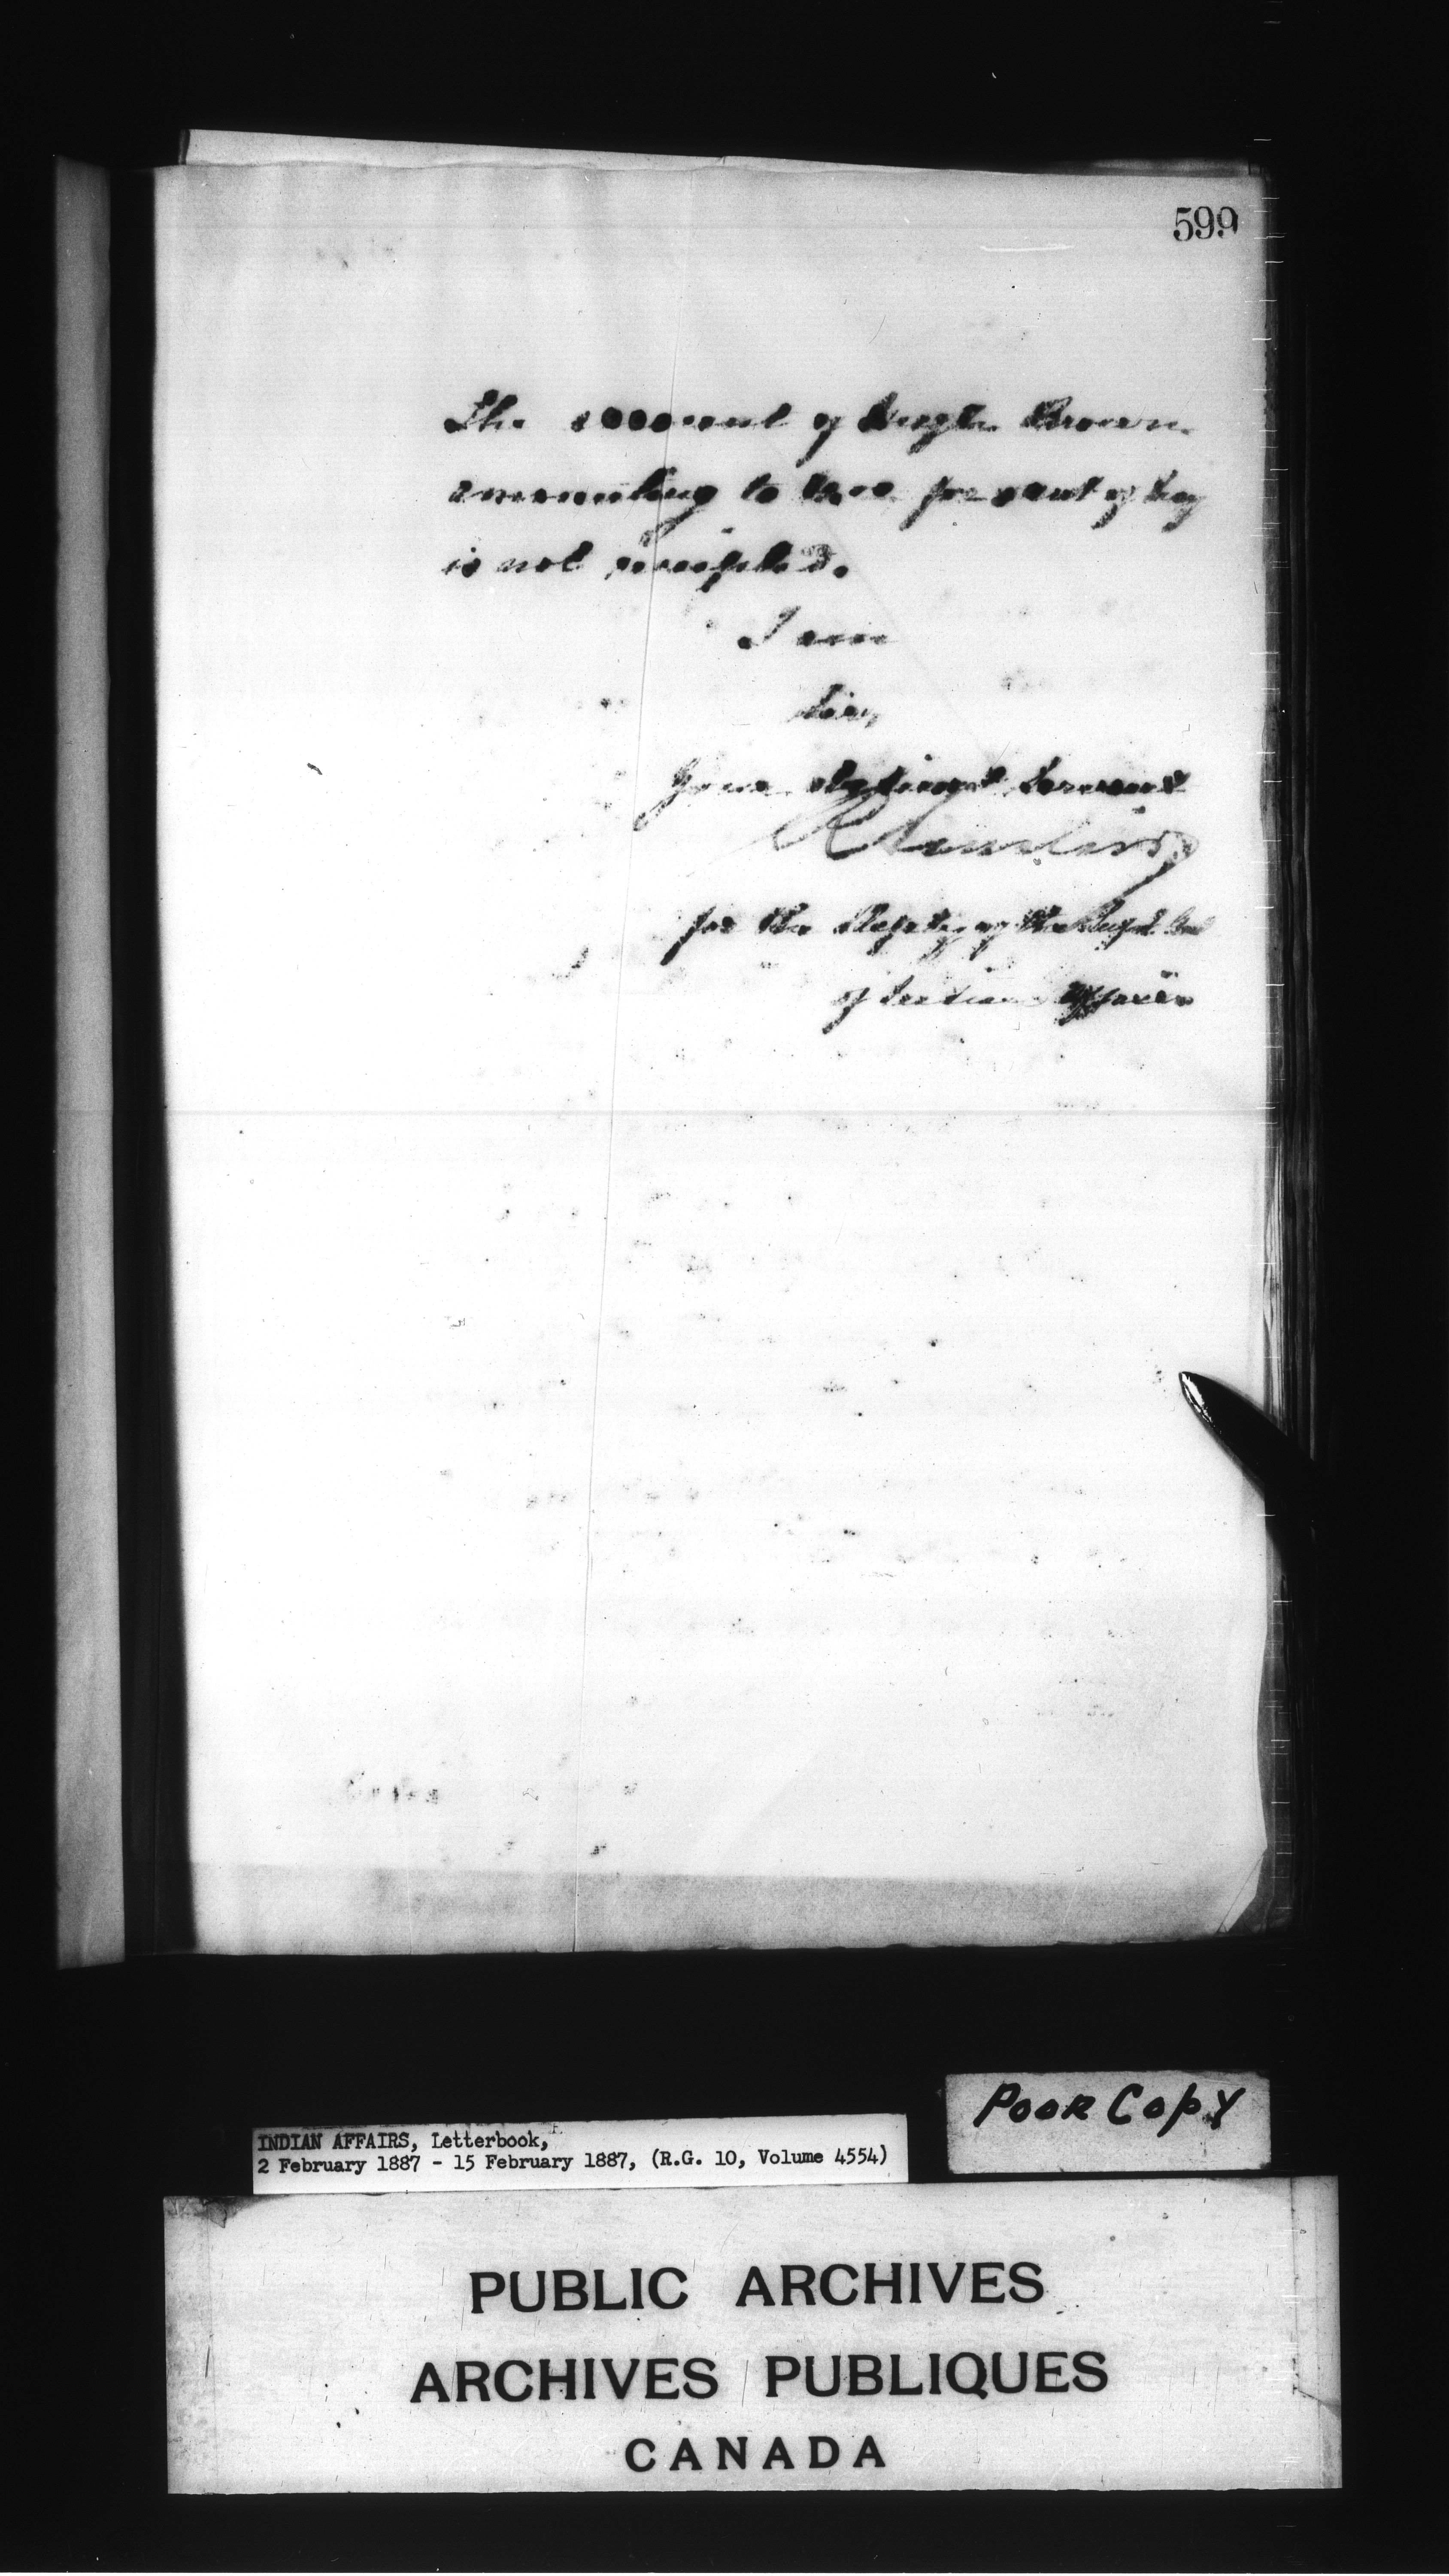 599
The account of Hugh Brown
amounting to
is not receipted.
I am
Sir,
Your obedient Servant
for the Deputy of the Supt Genl
of Indian Affairs
Poor Copy
INDIAN AFFAIRS, Letterbook,
2 February 1887 - 15 February 1887, (R.G. 10, Volume 4554)
PUBLIC ARCHIVES
ARCHIVES PUBLIQUES
CANADA